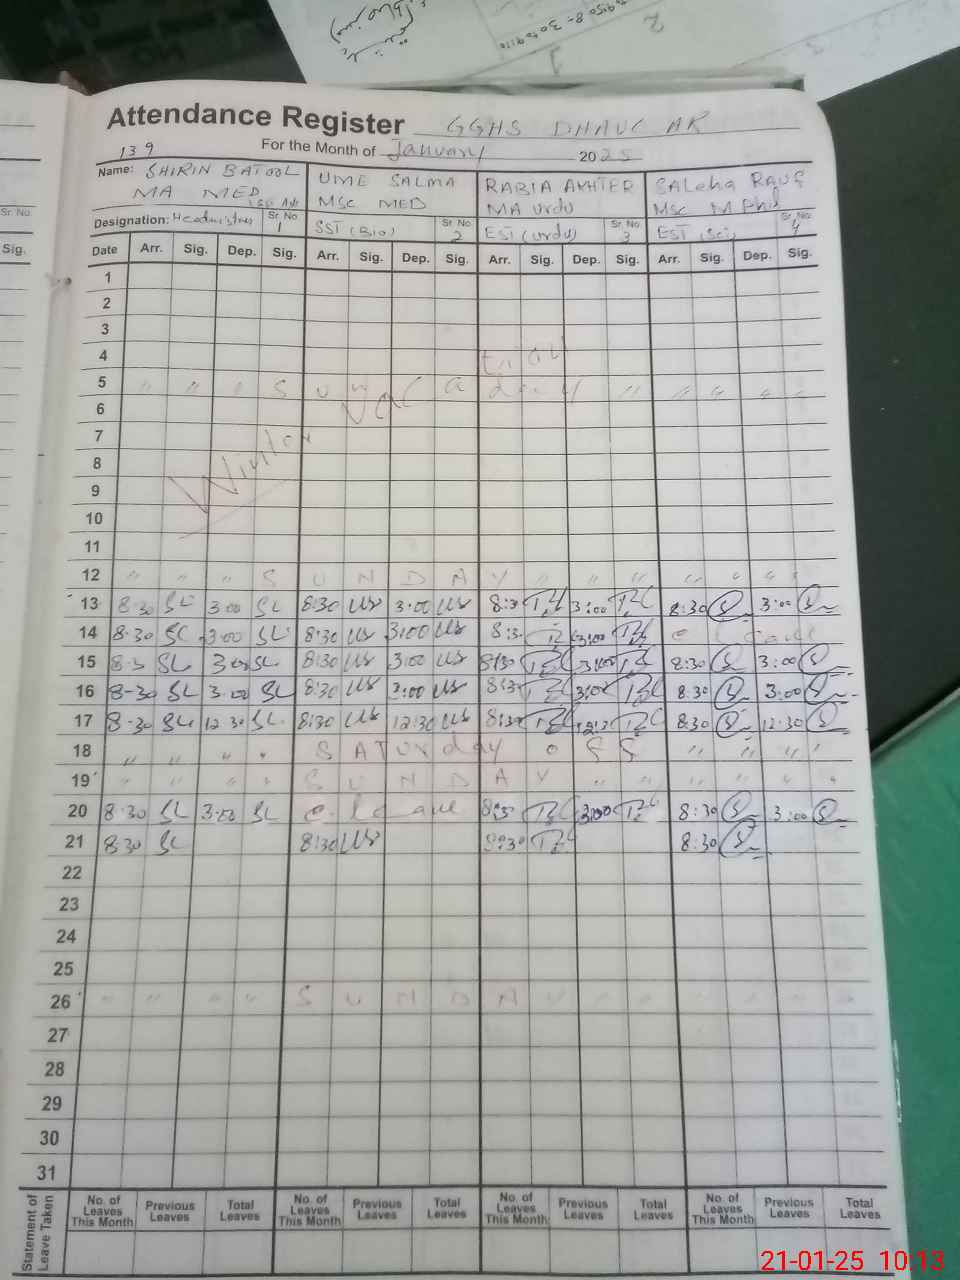 8-30 to 9:10
2
1
3
Attendance Register GGHS DHAUL AR
139 For the Month of January 2025
Name: SHIRIN BATOOL UME SALMA RABIA AKHTER SALeha RAUF
MA MED MSc MED MA Urdu MSc M Phil
Sr. No. Designation: Sr. No. 1 SST (Bio) Sr. No. 2 EST (Urdu) Sr. No. 3 EST (Sci) Sr. No. 4
Sig. Date Arr. Sig. Dep. Sig. Arr. Sig. Dep. Sig. Arr. Sig. Dep. Sig. Arr. Sig. Dep. Sig.
1
2
3
4
5 " " " S U N d a y " " " " "
6
7
Winter Vac
8
9
10
11
12 " " " S U N D A Y " " " " " " "
13 8:30 SL 3:00 SL 8:30 US 3:00 US 8:30 3:00 8:30 S 3:00 S
14 8:30 SL 3:00 SL 8:30 US 3:00 US 8:30 3:00 C leave
15 8:30 SL 3:00 SL 8:30 US 3:00 US 8:30 3:00 8:30 S 3:00 S
16 8-30 SL 3:00 SL 8:30 US 3:00 US 8:30 3:00 8:30 S 3:00 S
17 8-30 SL 12:30 SL 8:30 US 12:30 US 8:30 12:30 8:30 S 12:30 S
18 " " " " S A T U r d a y o f f " " " "
19 " " " " S U N D A Y " " " " " "
20 8:30 SL 3:00 SL C. leave 8:30 3:00 8:30 S 3:00 S
21 8:30 SL 8:30 US 8:30 8:30 S
22
23
24
25
26 " " " " S U N D A Y " " " " " "
27
28
29
30
31
Statement of Leave Taken
No. of Leaves This Month Previous Leaves Total Leaves No. of Leaves This Month Previous Leaves Total Leaves No. of Leaves This Month Previous Leaves Total Leaves No. of Leaves This Month Previous Leaves Total Leaves
21-01-25 10:13